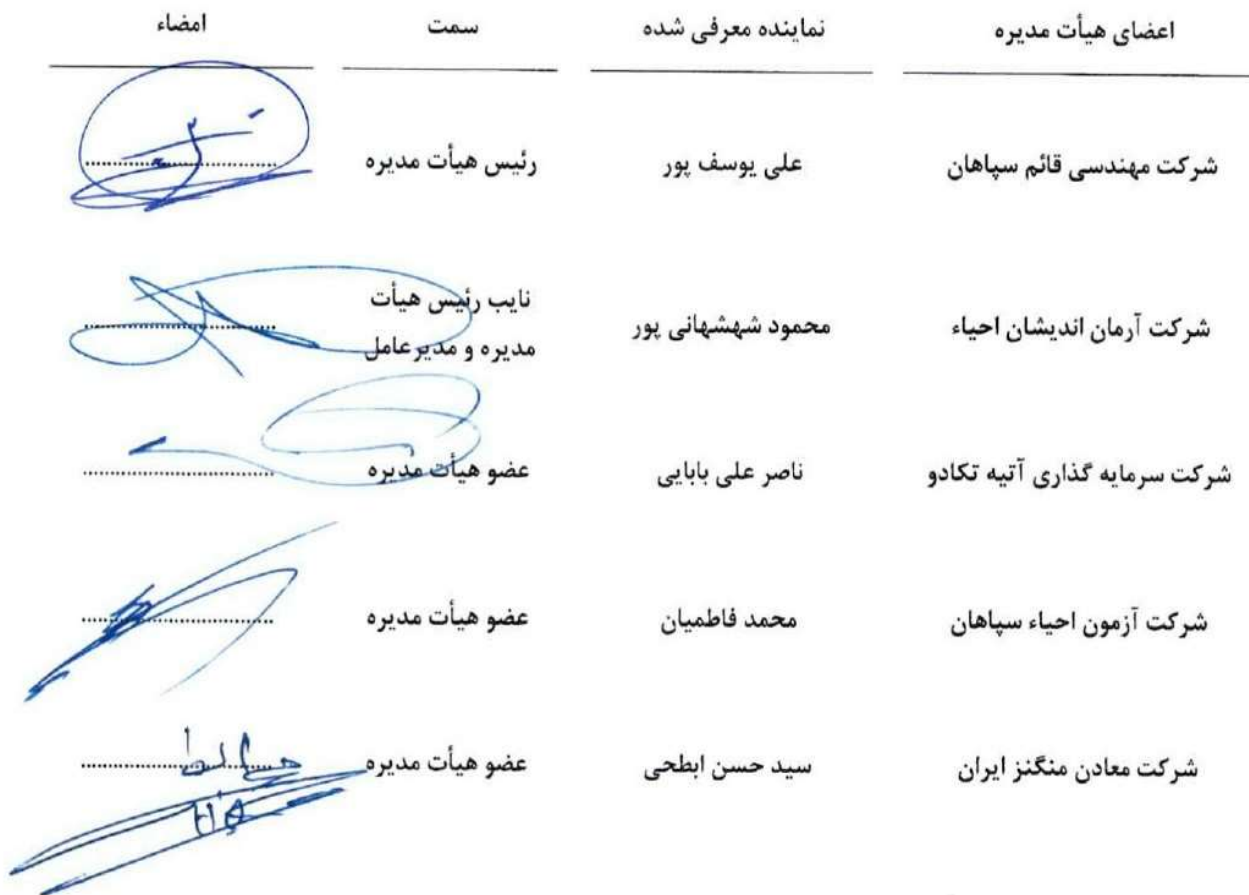 اعضای هیأت مدیره نماینده معرفی شده سمت امضاء
شرکت مهندسی قائم سپاهان علی یوسف پور رئیس هیأت مدیره
شرکت آرمان اندیشان احیاء محمود شهشهانی پور نایب رئیس هیأت
مدیره و مدیرعامل
شرکت سرمایه گذاری آتیه تکادو ناصر علی بابایی عضو هیأت مدیره
شرکت آزمون احیاء سپاهان محمد فاطمیان عضو هیأت مدیره
شرکت معادن منگنز ایران سید حسن ابطحی عضو هیأت مدیره